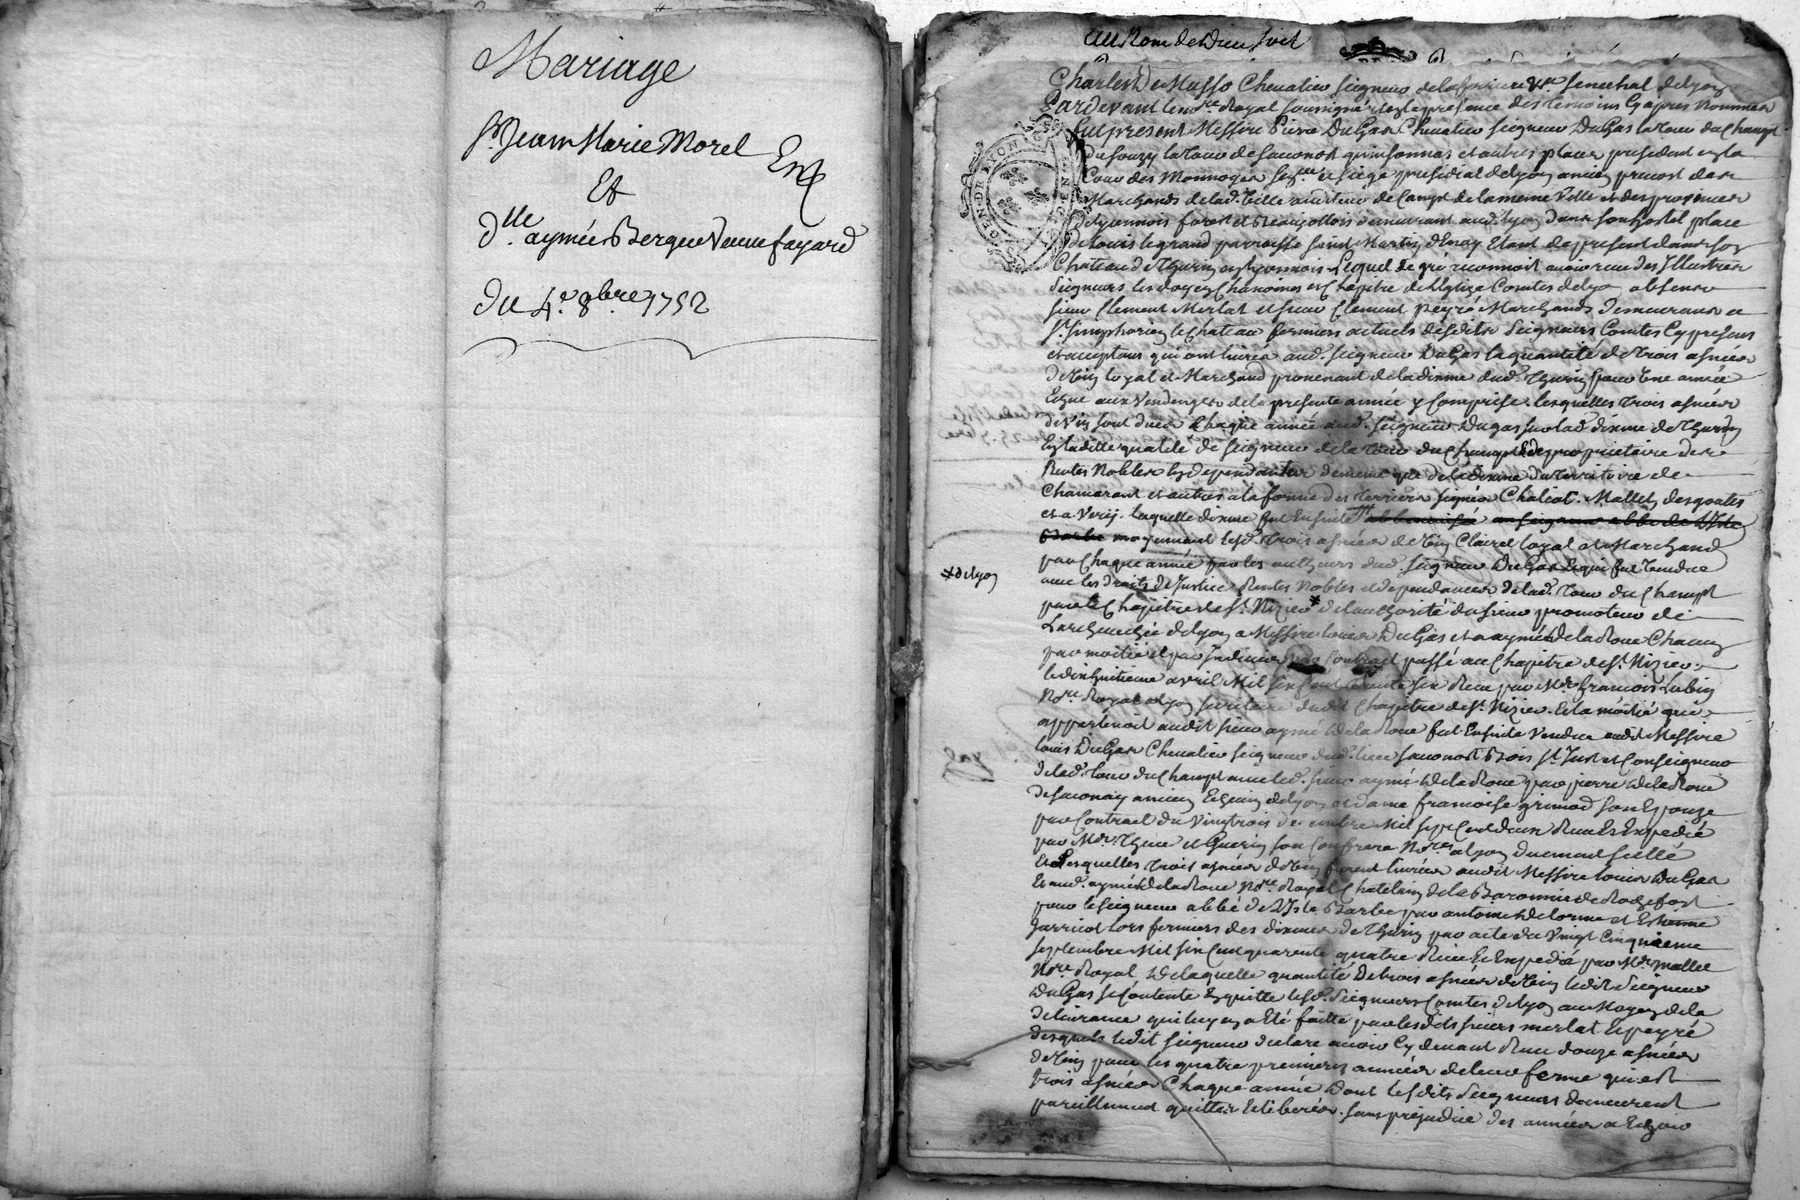 Mariage
Sr. Jean Marie Morel
Et
Dlle. aymée Bergue Veuve fayard
Du 4e. 8bre. 1752
Au Nom de Dieu soit
GEN. DE LYON
Charles De Masso Chevalier seigneur de la ferriere Senechal de Lyon
Pardevant le nore. Royal soussigné et en la presence des temoins Cy apres Nommés
fut present Messire Pierre DuGas Chevalier seigneur DuGas la tour du Champt
Du souzy la tour de savonost quinsonnas et autres places president en la
Cour des Monnoyes senech. et siege presidial de Lyon ancien prevost des
Marchands de lad. Ville auditeur de Camp de la meme Ville et des provinces
De Lyonnois forest et Beaujollois demeurant aud. Lyon dans son hostel place
De Louis le grand parroisse saint Martin d'Enay Etant de present dans son
Chateau de Thurin en Lyonnois. Lequel de gré reconnoit avoir reçu des Illustres
Seigneurs les doyen Chanoines et Chapitre de L'Eglize Comtes de Lyon absens
sieur Clement Merlat et sieur Clement peyré Marchands Demeurans a
St. Simphorien le chateau fermiers actuels desdits Seigneurs Comtes Cy presens
et acceptans qui ont livrés aud. seigneur DuGas la quantité de trois asnées
de Vin loyal et Marchand provenant de la dixme dud. Thurin pour Une année
Echue aux Vendenges de la presente année y Comprise. lesquelles trois asnées
de Vin sont dues Chaque année aud. seigneur Dugas sur lad. dixme de Thurin
En ladite qualité de seigneur de la tour du Champt et de propriétaire des
Rentes Nobles en dependantes de meme que de la dixme du territoire de
Chamarant et autres a la forme des terriers signés Chaliot. Mallet, desgoutes
et a Verij. laquelle dixme fut Ensuite abbenevisée au seigneur abbé de L'Isle
Barbe moyennant lesd. trois asnées de Vin Claire loyal et Marchand
par Chaque année par les autheurs dud. seigneur DuGas Et qui fut Vendue
avec les Droits de Justice Rentes Nobles et dependances de lad. tour du Champt
par le Chapitre de St. Nizier de l'authorité du sieur promoteur de
L'archeveché de Lyon a Messire louis DuGas et a aymé de la Roue Chacun
par moitié et par Indivis par Contract passé au Chapitre de St. Nizier
le dixhuitieme avril Mil six Cent trente six Receu par Me. francois Lubin
Nore. Royal a Lyon secretaire dudit Chapitre de St. Nizier. Et la moitié qui
appartenoit audit sieur aymé de la Roue fut Ensuite Vendue audit Messire
louis DuGas Chevalier seigneur dud. lieu savonost Bois St. Just et Conseigneur
de lad. tour du Champt avec led. sieur aymé de la Roue par pierre de la Roue
de savonay ancien Echevin de Lyon et dame francoise grimod son Epouze
par Contract du Vingtrois decembre Mil sept Cent deux Receu Et Expedié
par Me. Theve et Guerin son Confrere Nores. a Lyon duement scellé
Et lesquelles trois asnées de Vin furent livrées audit Messire louis DuGas
Et aud. aymé de la Roue Nore. Royal Chatelain de la Baronnie de Rochefort
pour le seigneur abbé de L'Isle Barbe par antoine de lorme et Estienne
Jarricot lors fermiers des dixmes de Thurin par acte du Vingt Cinquieme
septembre Mil six Cent quarente quatre Receu Et Expedié par Me. mallet
Nore. Royal De laquelle quantité de trois asnées de Vin ledit Seigneur
DuGas se Contente En quitte lesd. Seigneurs Comtes de Lyon au Moyen de la
delivrance qui luy en a Eté faitte par lesdits sieurs merlat Et peyré
desquels ledit seigneur declare avoir Cy devant Receu douze asnées
de Vin pour les quatre premieres années de leur ferme qui est
trois asnées Chaque année Dont lesdits seigneurs demeurent
pareillement quittes Et liberés. sans prejudice des années a Echoir
de Lyon